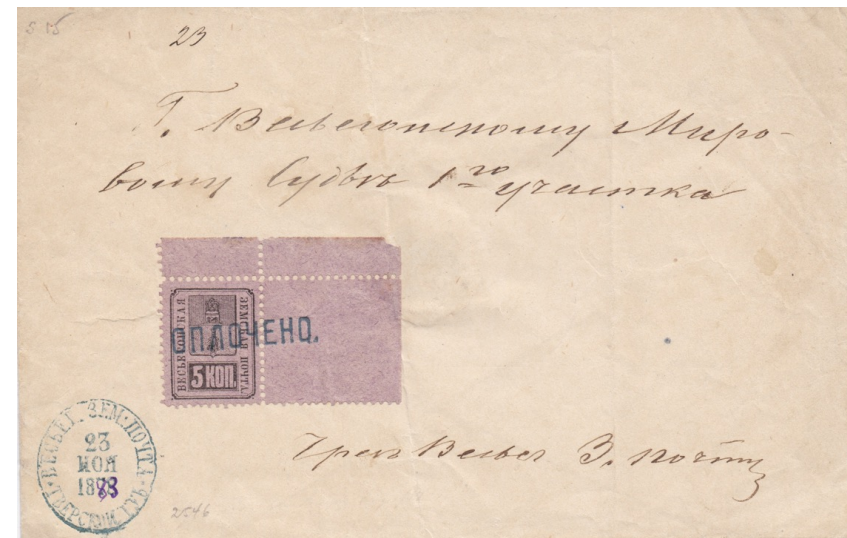 23
Г. Весьегонскому Миро-
вому Судьѣ 1го участка
ВЕСЬЕГОНСКАЯ
ЗЕМСКАЯ ПОЧТА.
ОПЛОЧЕНО.
5 КОП.
Чрезъ Весьег З. почту
ВЕСЬЕГ. ЗЕМ. ПОЧТА
23
ИЮЛ
1883
ТВЕРСКОЙ ГУБ.
2546